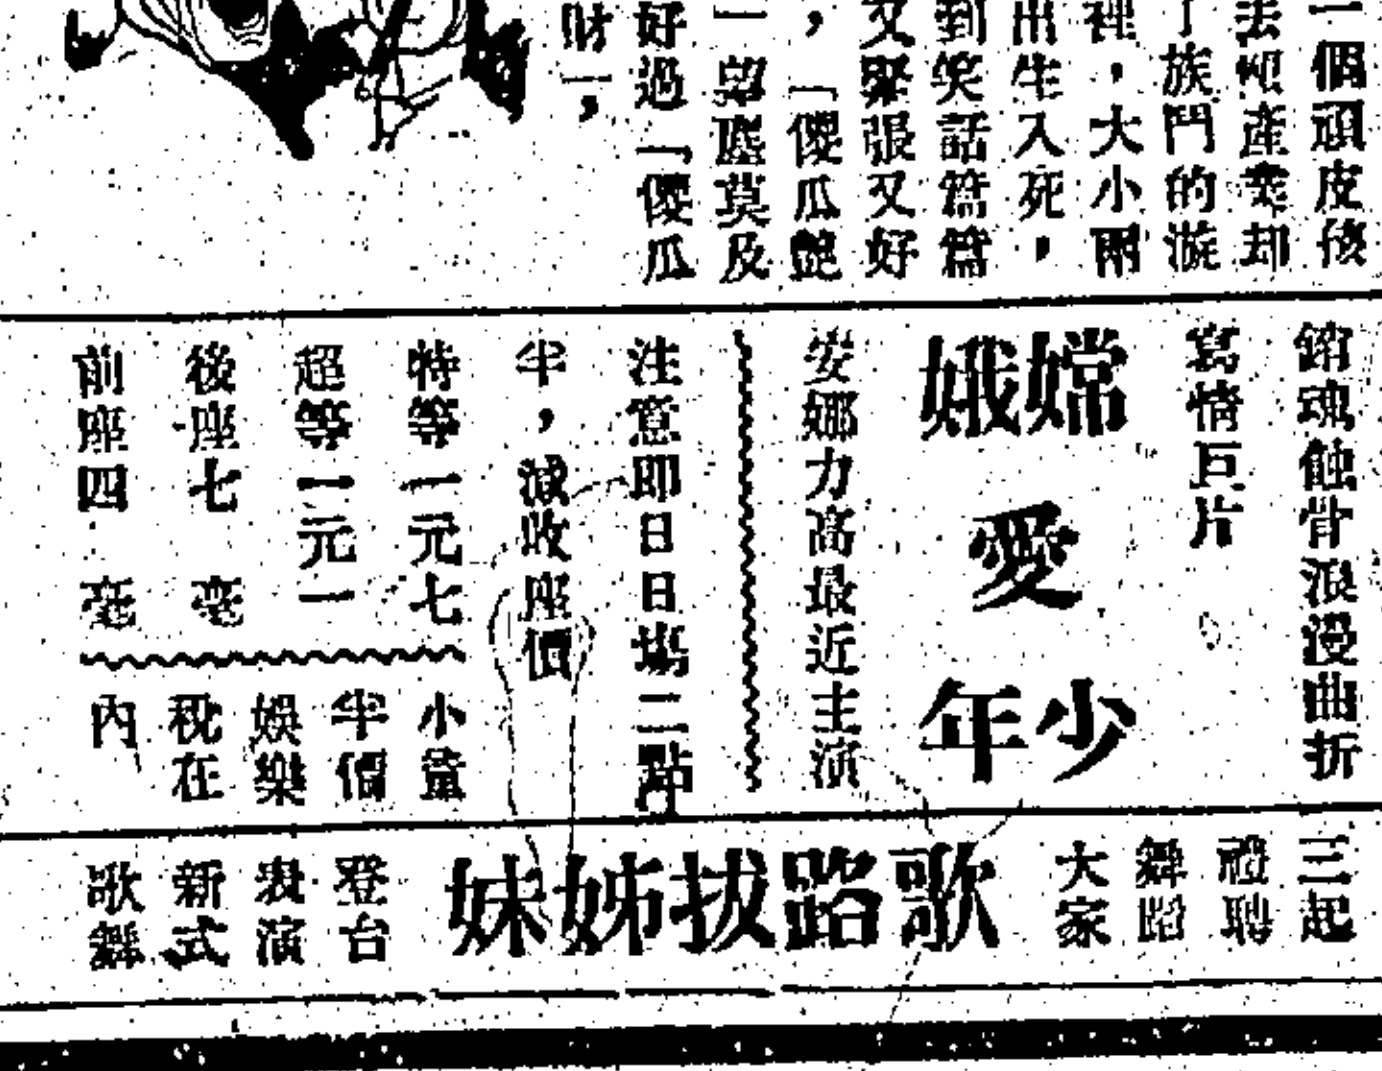 一個頑皮後
法視產業却
了族鬥的漩
裡，大小兩
出生入死，
到笑話篇篇
又緊張又好
，「傻瓜艶
一望塵莫及
好過「傻瓜
財一，
銷魂蝕骨浪漫曲折
寫情巨片
嫦娥
愛
少年
安娜力高最近主演
注意即日日塲二點
半，減收座價
特等一元七
超等一元一
後座七毫
前座四毫
小童
半價
娛樂
稅在
內
三起
禮聘
舞蹈
大家
歌路拔姊妹
登台
表演
新式
歌舞